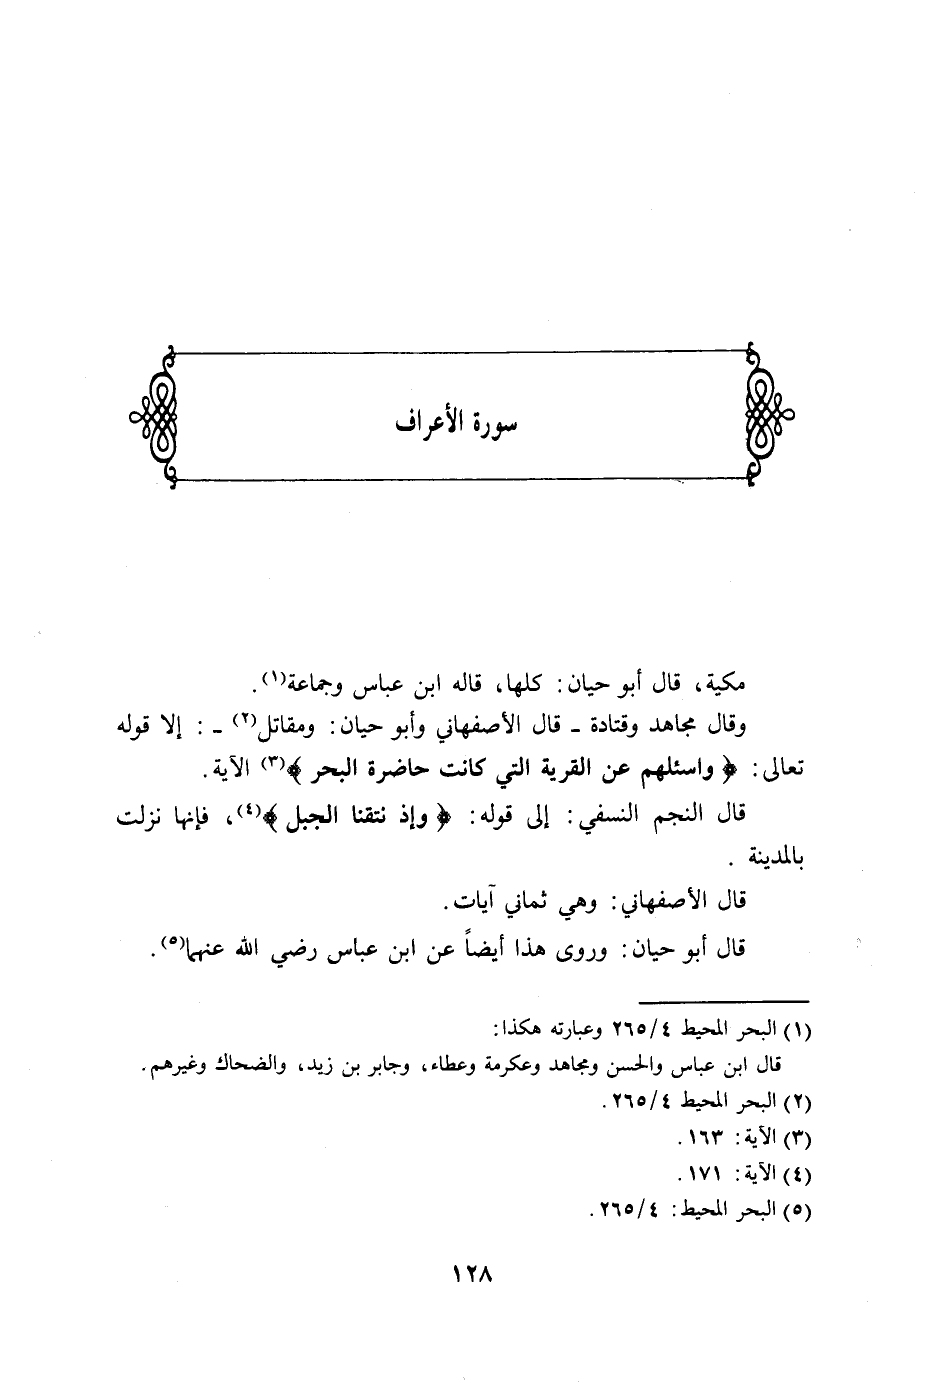 سورة الأعراف
مكية، قال أبو حيان: كلها، قاله ابن عباس وجماعة(١).
وقال مجاهد وقتادة ـ قال الأصفهاني وأبو حيان: ومقاتل(٢) ـ : إلا قوله
تعالى: ﴿ واسئلهم عن القرية التي كانت حاضرة البحر ﴾(٣) الآية.
قال النجم النسفي: إلى قوله: ﴿ وإذ نتقنا الجبل ﴾(٤)، فإنها نزلت
بالمدينة .
قال الأصفهاني: وهي ثماني آيات.
قال أبو حيان: وروى هذا أيضاً عن ابن عباس رضي الله عنهما(٥).
(١) البحر المحيط ٢٦٥/٤ وعبارته هكذا:
قال ابن عباس والحسن ومجاهد وعكرمة وعطاء، وجابر بن زيد، والضحاك وغيرهم.
(٢) البحر المحيط ٢٦٥/٤.
(٣) الآية: ١٦٣.
(٤) الآية: ١٧١.
(٥) البحر المحيط: ٢٦٥/٤.
١٢٨